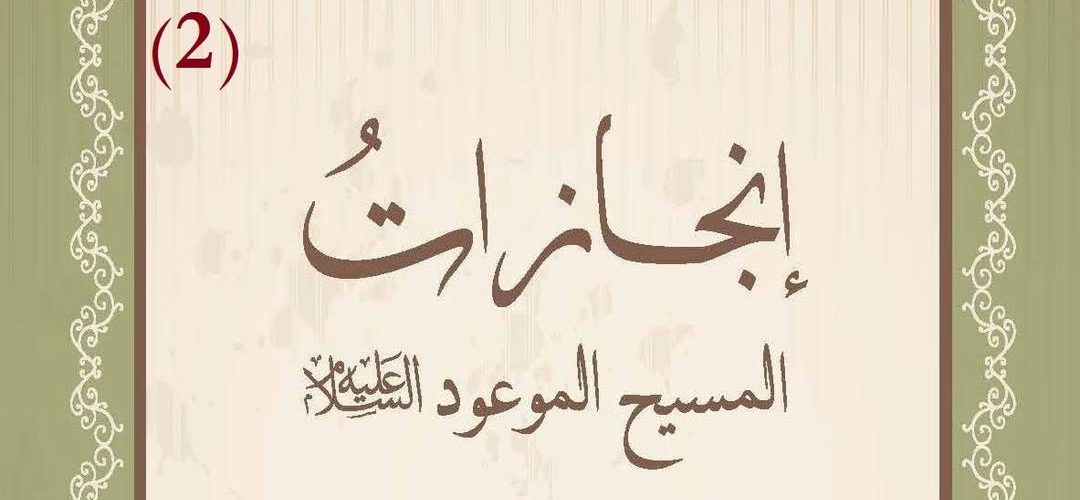 (2)
إنجازاتُ
المسيح الموعود عليه السلام